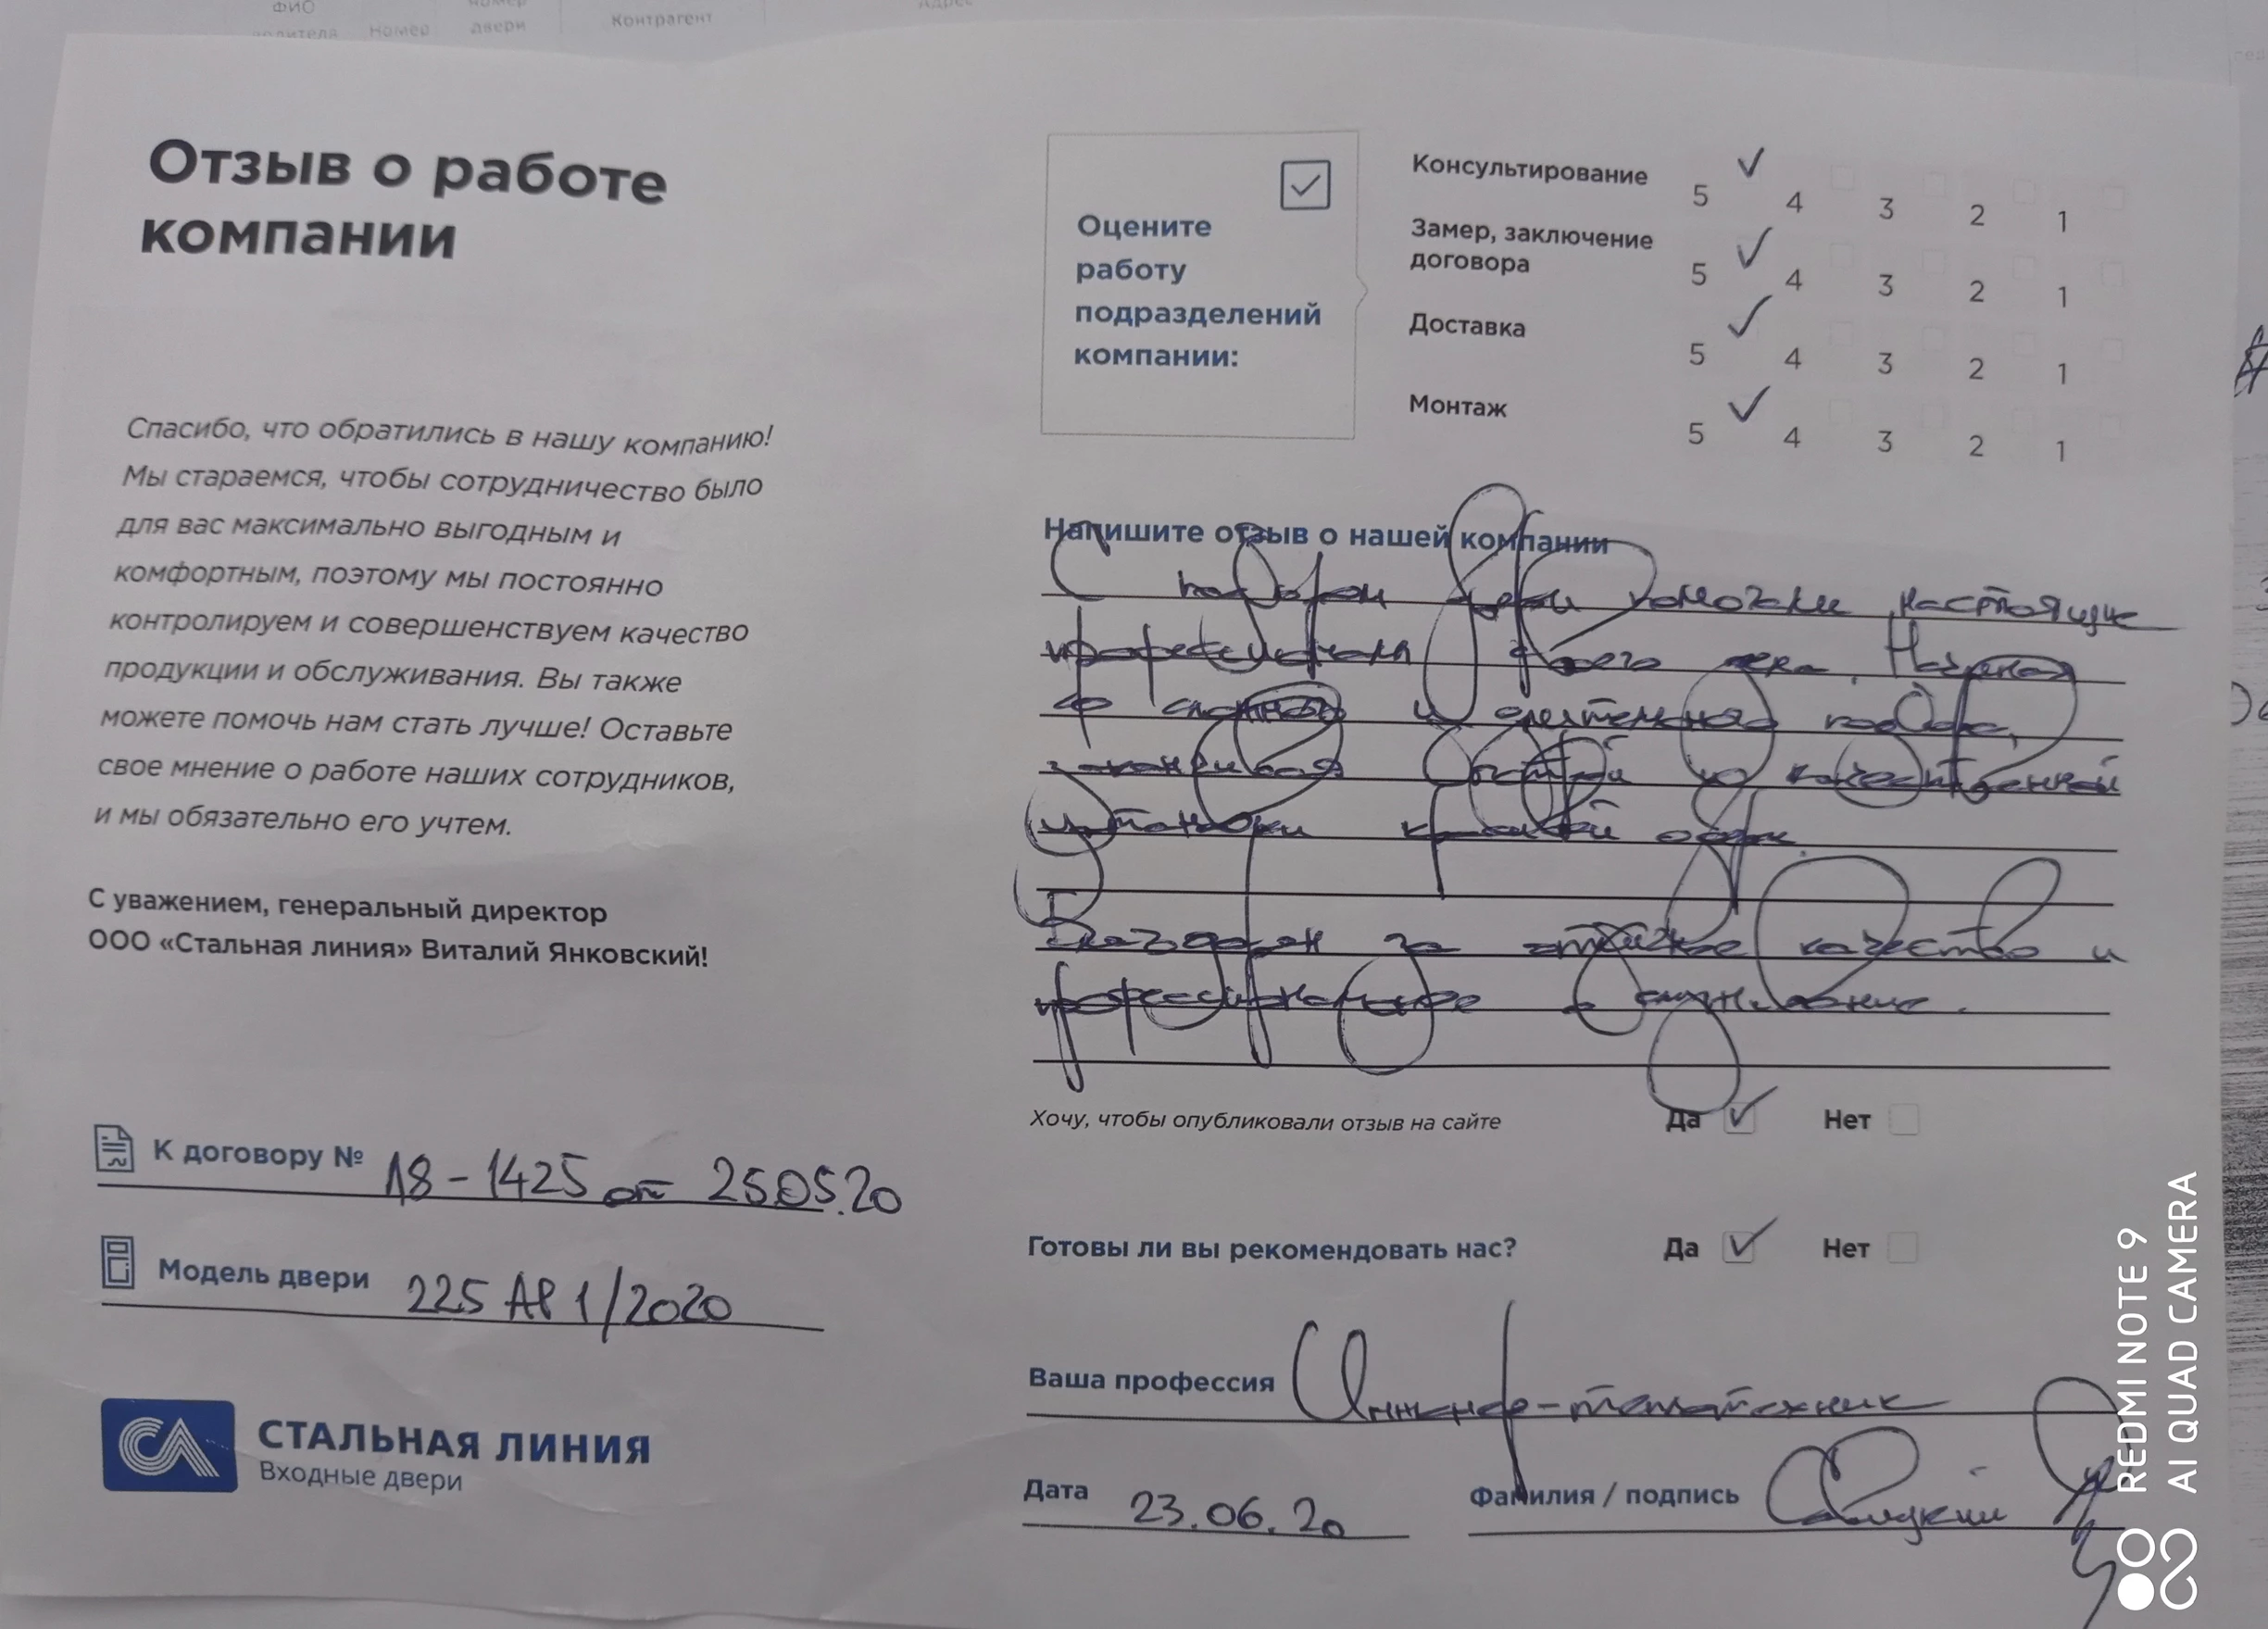 ФИО
водителя
Номер
номер
двери
Контрагент
Адрес
Отзыв о работе
компании
Спасибо, что обратились в нашу компанию!
Мы стараемся, чтобы сотрудничество было
для вас максимально выгодным и
комфортным, поэтому мы постоянно
контролируем и совершенствуем качество
продукции и обслуживания. Вы также
можете помочь нам стать лучше! Оставьте
свое мнение о работе наших сотрудников,
и мы обязательно его учтем.
С уважением, генеральный директор
ООО «Стальная линия» Виталий Янковский!
К договору № 18-1425 от 25.05.20
Модель двери 225 АР 1/2020
СА СТАЛЬНАЯ ЛИНИЯ
Входные двери
Оцените
работу
подразделений
компании:
Консультирование 5 4 3 2 1
Замер, заключение
договора 5 4 3 2 1
Доставка 5 4 3 2 1
Монтаж 5 4 3 2 1
Напишите отзыв о нашей компании
С подбором двери помогали настоящие
профессионалы своего дела. Начиная
со сложного и длительного подбора,
заканчивая быстрой и качественной
установки
Благодарен за отличное качество и
профессиональное обслуживание.
Хочу, чтобы опубликовали отзыв на сайте Да Нет
Готовы ли вы рекомендовать нас? Да Нет
Ваша профессия Инженер-теплотехник
Дата 23.06.20 Фамилия / подпись
REDMI NOTE 9
AI QUAD CAMERA